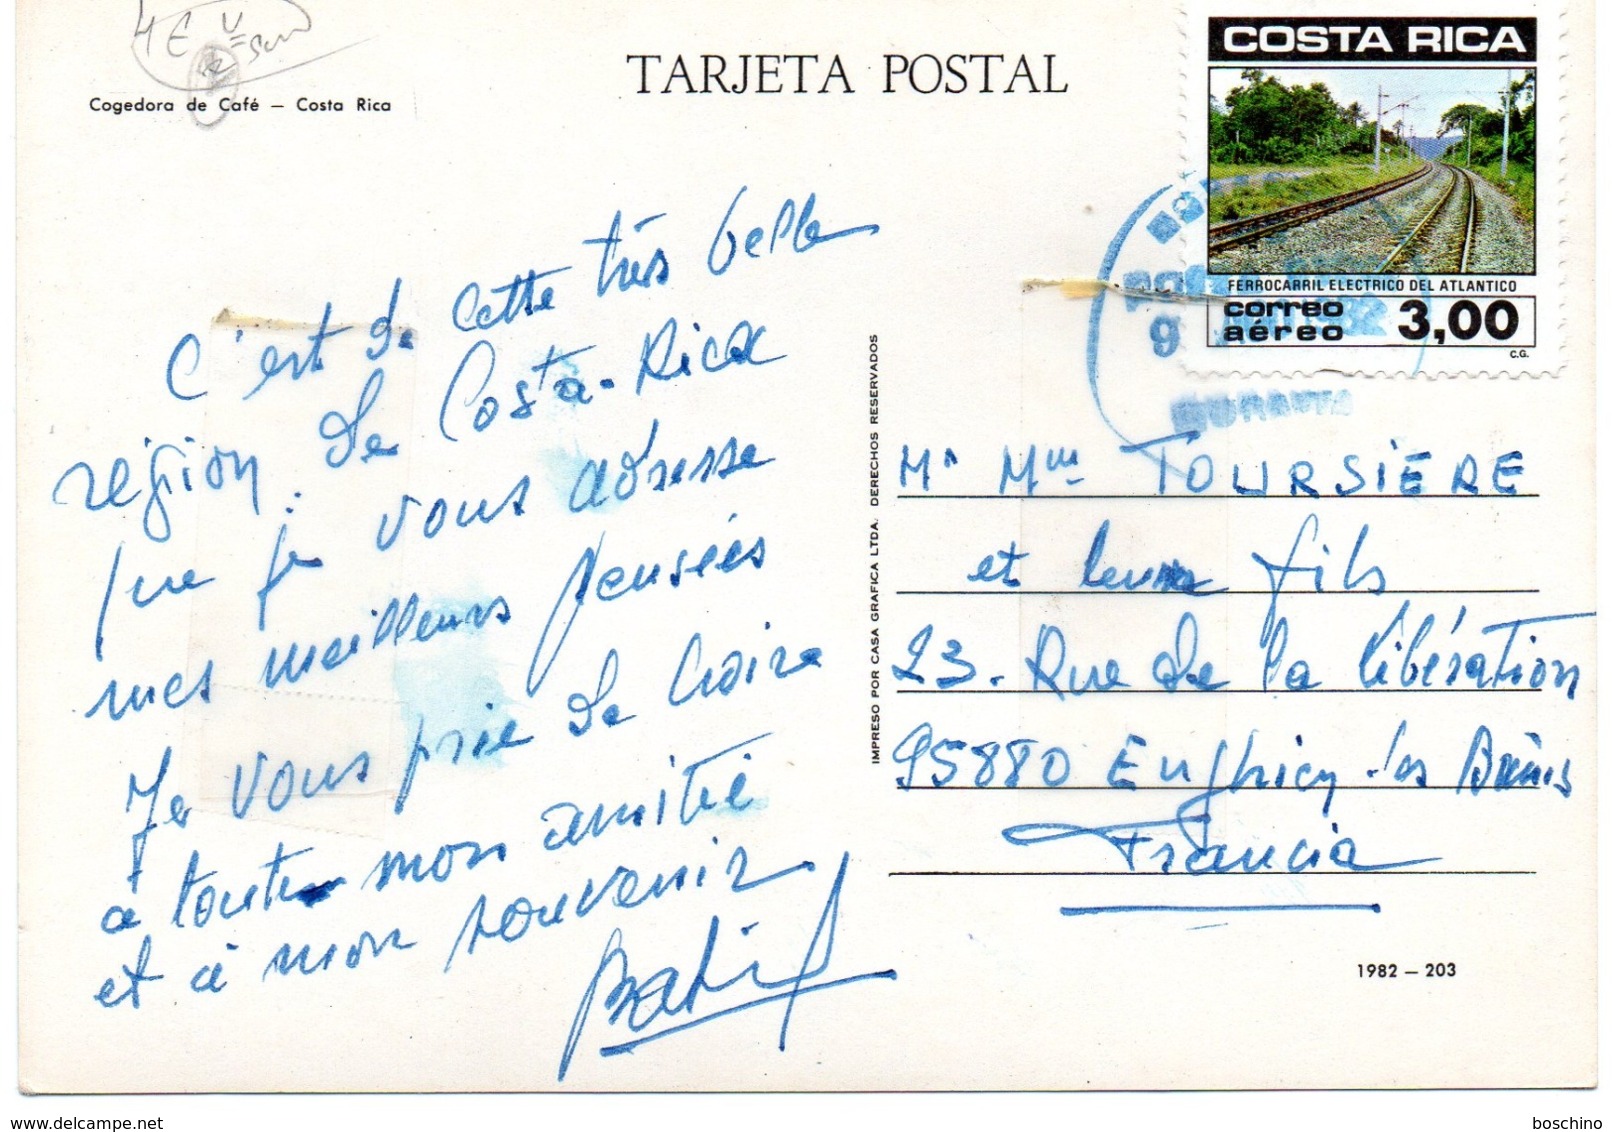 4 €
TARJETA POSTAL
Cogedora de Café — Costa Rica
COSTA RICA
FERROCARRIL ELECTRICO DEL ATLANTICO
correo
aéreo 3,00
C.G.
9 1982
C'est de cette très belle
région de Costa-Rica
que je vous adresse
mes meilleurs pensées
Je vous prie de croire
à toute mon amitié
et à mon souvenir
IMPRESO POR CASA GRAFICA LTDA. DERECHOS RESERVADOS
Mr Mme TOURSIERE
et leurs fils
23. Rue de la libération
95880 Enghien-les Bains
Francia
1982 — 203
delcampe.net
boschino